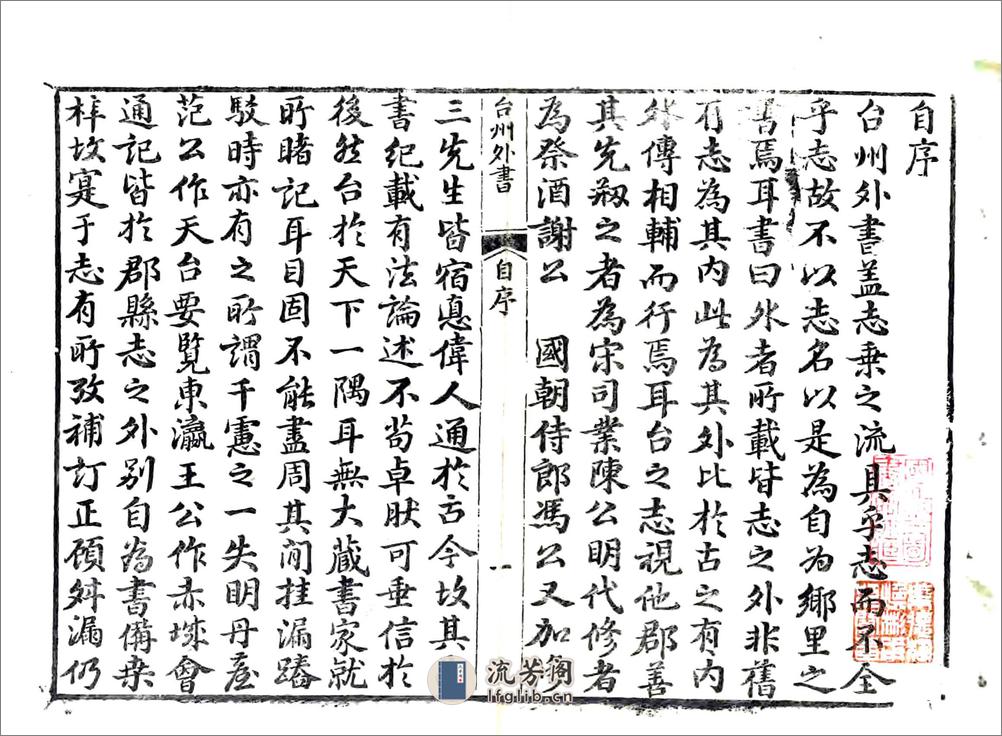 自序
台州外書葢志乗之流具乎志而不全
乎志故不以志名以是為自為鄉里之
書焉耳書曰外者所載皆志之外非舊
有志為其内此為其外比於古之有内
外傳相輔而行焉耳台之志視他郡善
其先剏之者為宋司業陳公明代修者
為祭酒謝公 國朝侍郎馮公又加
三先生皆宿悳偉人通於古今故其
書紀載有法論述不茍卓肰可垂信於
後然台於天下一隅耳無大蔵書家就
所睹記耳目固不能盡周其閒挂漏踳
駁時亦有之所謂千慮之一失明丹崖
范公作天台要覽東瀛王公作赤城會
通記皆於郡縣志之外别自為書備桒
梓故寔于志有所攷補訂正顧舛漏仍
台州外書
自序
一
流芳阁
lfglib.cn